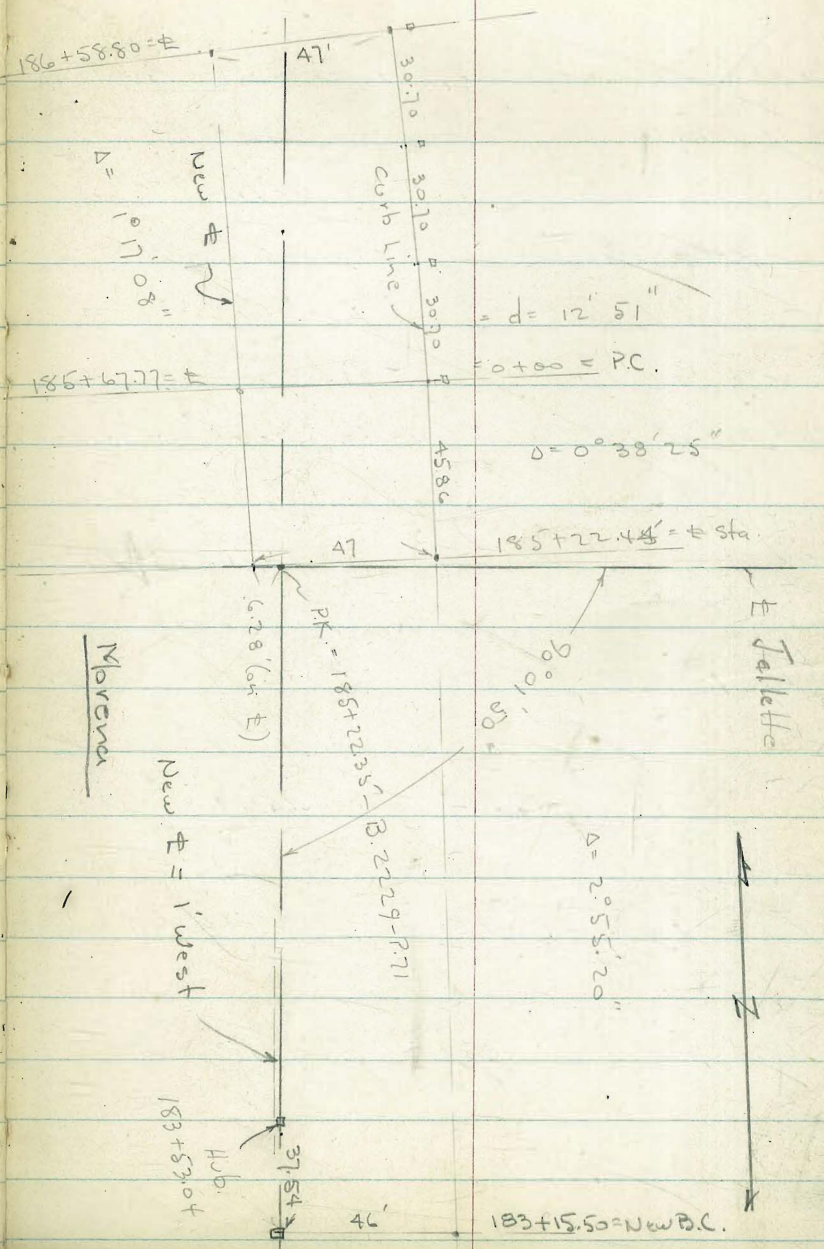 186+58.80=℄
47'
30.70
30.70
30.70
Curb Line
New ℄
Δ= 1°17'08"
= d= 12' 51"
185+67.77=℄
=0+00 = P.C.
Δ= 0°38'25"
45.86
47
185+22.44'=℄ Sta.
6.28' (on ℄)
P.K. = 185+22.35'-B.2229-P.71
90° 01' 50"
℄ Jellette
Morena
New ℄ = 1' West
Δ= 2°55'20"
N
Hub.
183+53.04
37.54
46'
183+15.50=New B.C.